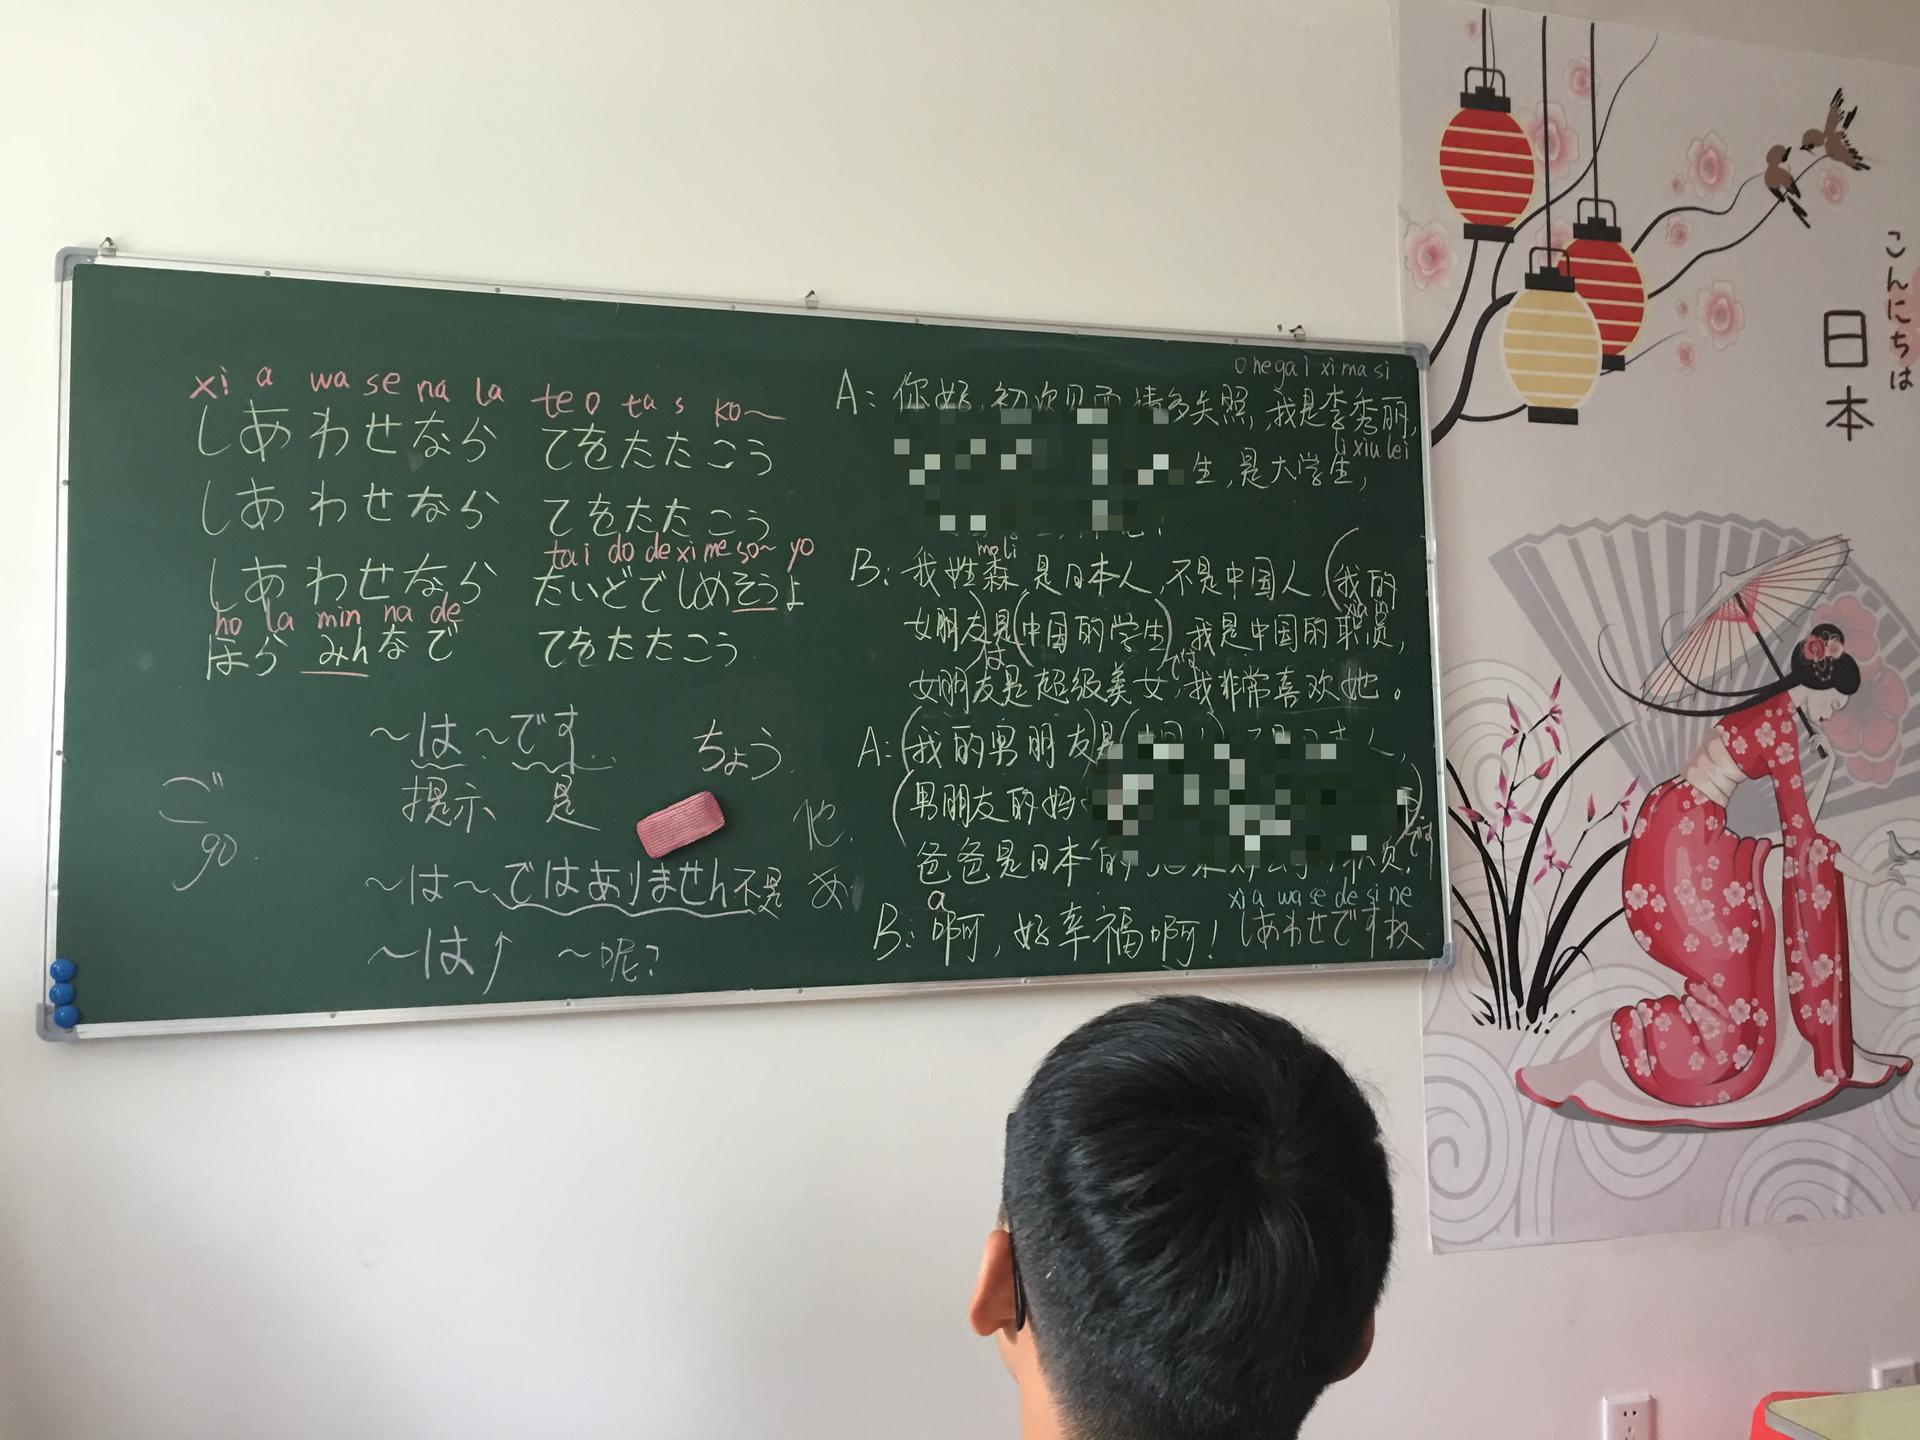 xi a wa se na la te o ta s ko～
しあわせなら てをたたこう
しあわせなら てをたたこう
tai do de xi me so～ yo
しあわせなら たいどでしめそうよ
ho la min na de
ほら みんなで てをたたこう
～は～です
ちょう
提示 是
ご
go
他
～は～ではありません不是
～は↑ ～呢?
onegai ximasi
A: 你好,初次见面 请多关照,我是李秀丽,
li xiu lei
生,是大学生,
moli
B: 我姓森是日本人,不是中国人,(我的
xia
女朋友)是(中国的学生),我是中国的职员,
は です
女朋友是超级美女,我非常喜欢她。
A: (我的男朋友)是 人,
(男朋友的妈
爸爸是日本的 员.
a xi a wa se de si ne
B: 啊,好幸福啊! しあわせですね
こんにちは
日本